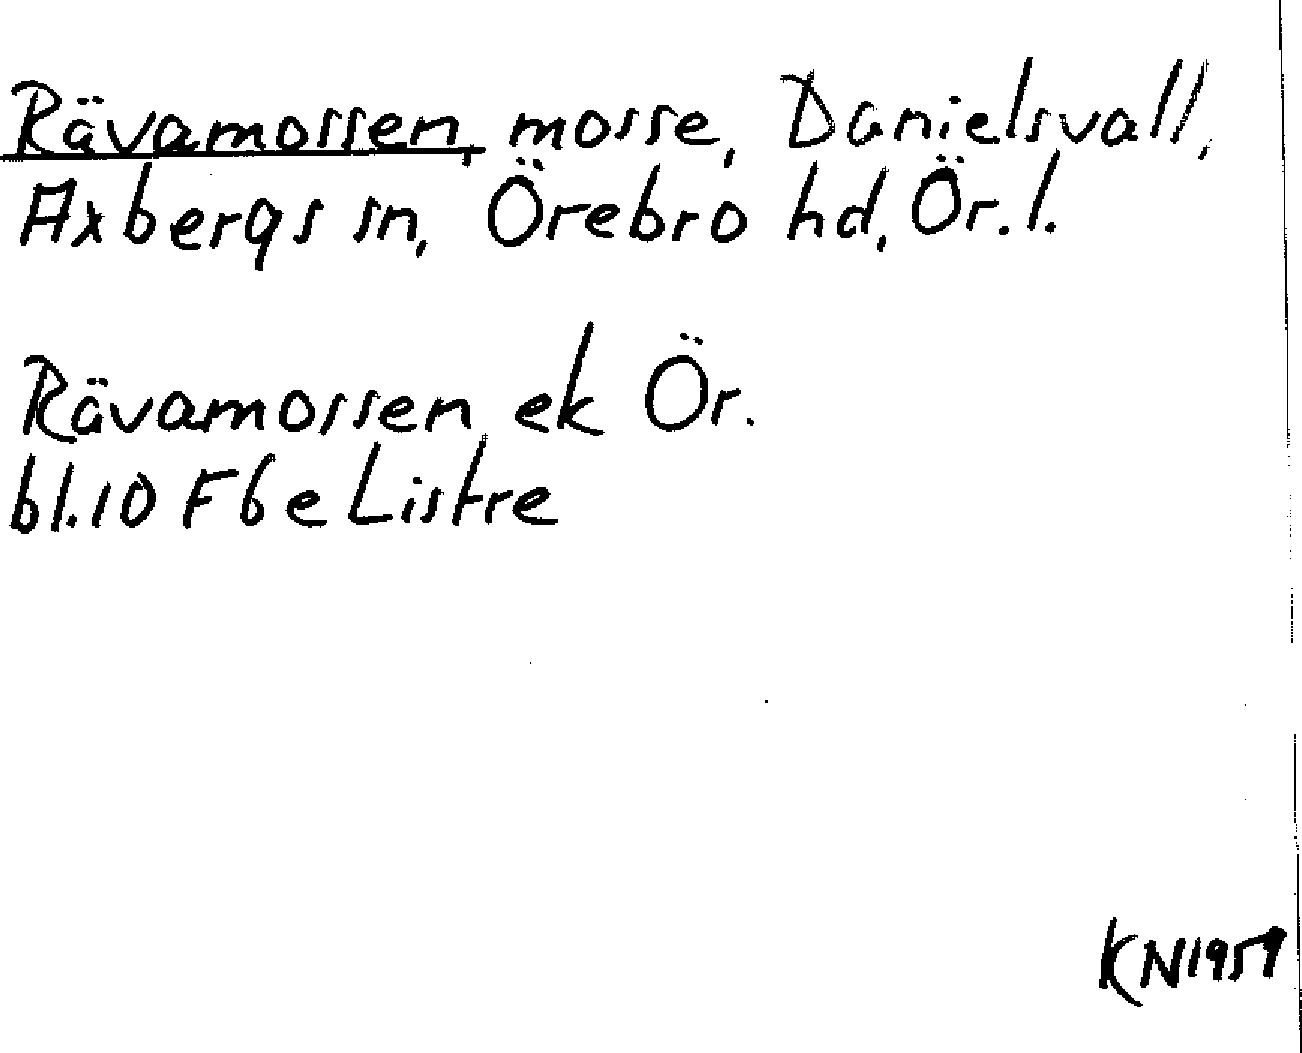 Rävamossen, mosse, Danielsvall,
Axbergs sn, Örebro hd, Ör. l.
Rävamossen ek Ör.
bl. 10 F6e Listre
KN1959